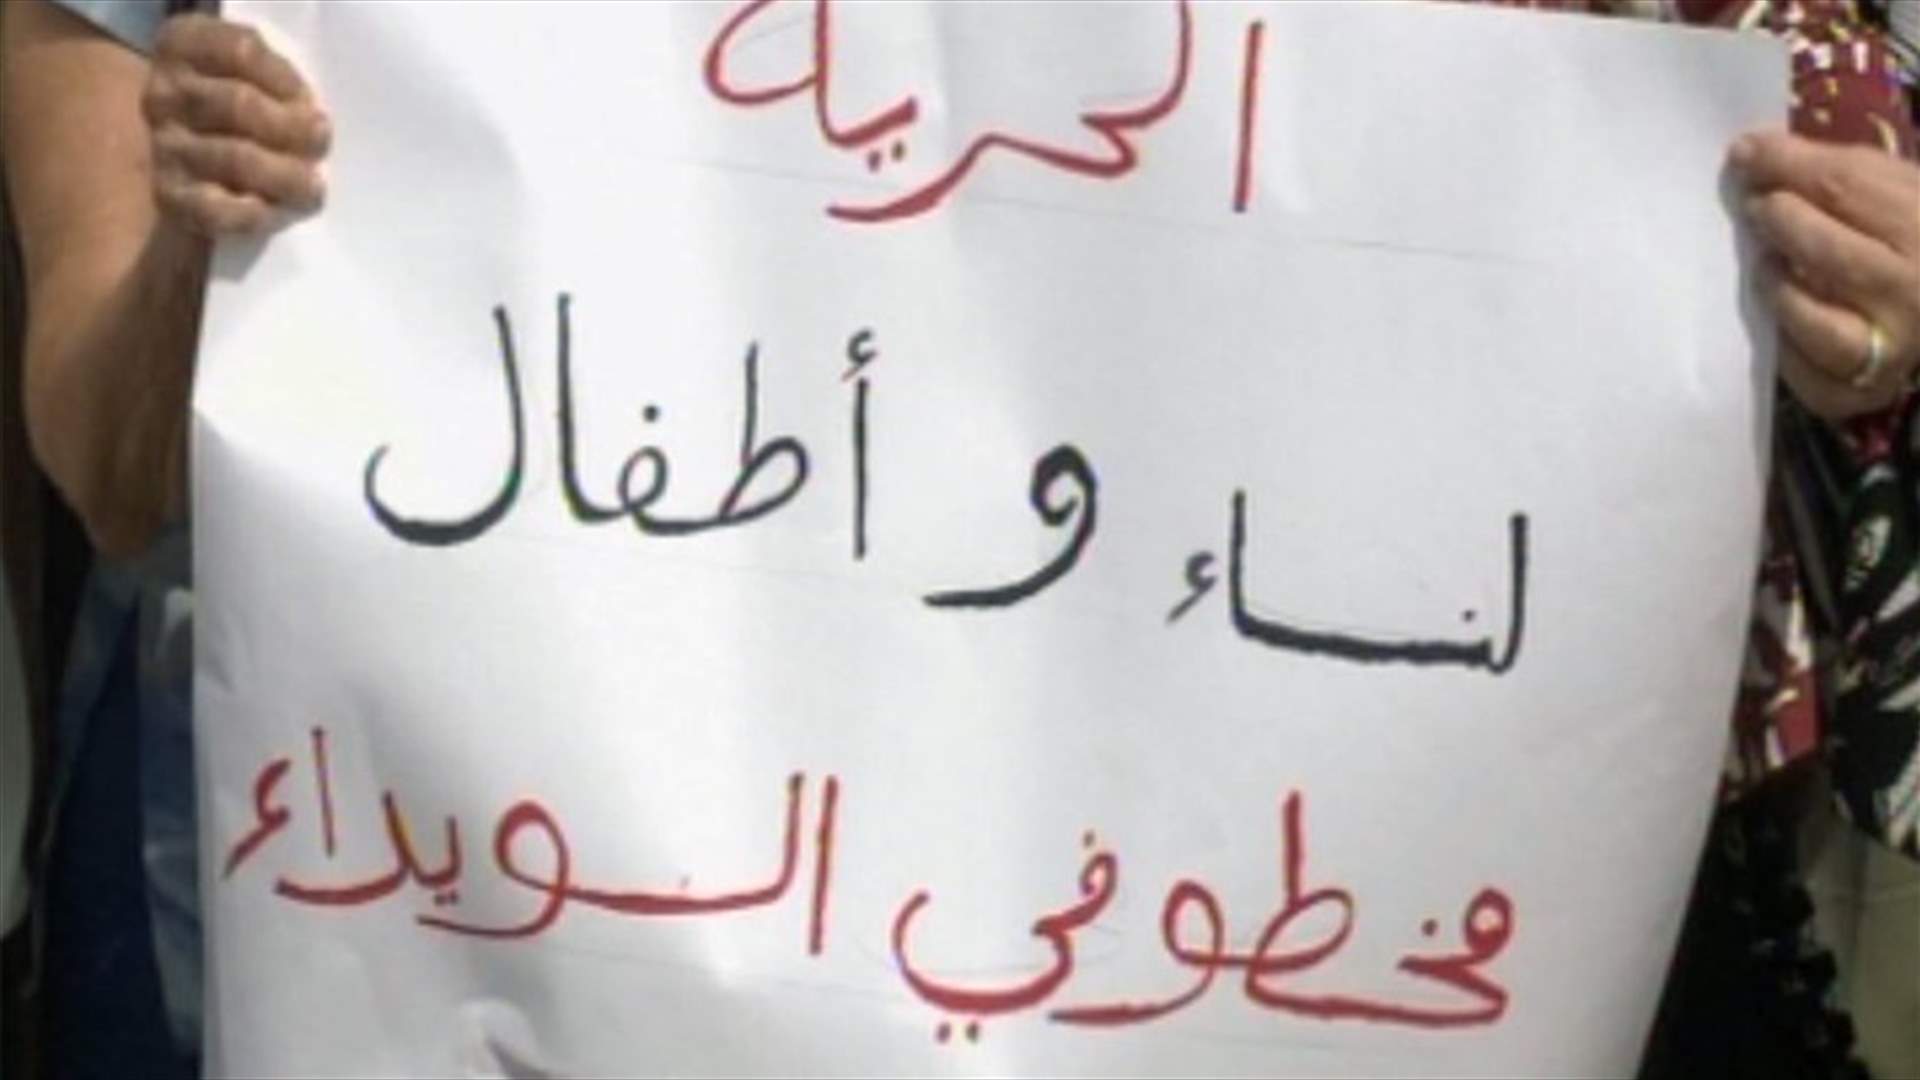 الحرية
لنساء و أطفال
مخطوفي السويداء